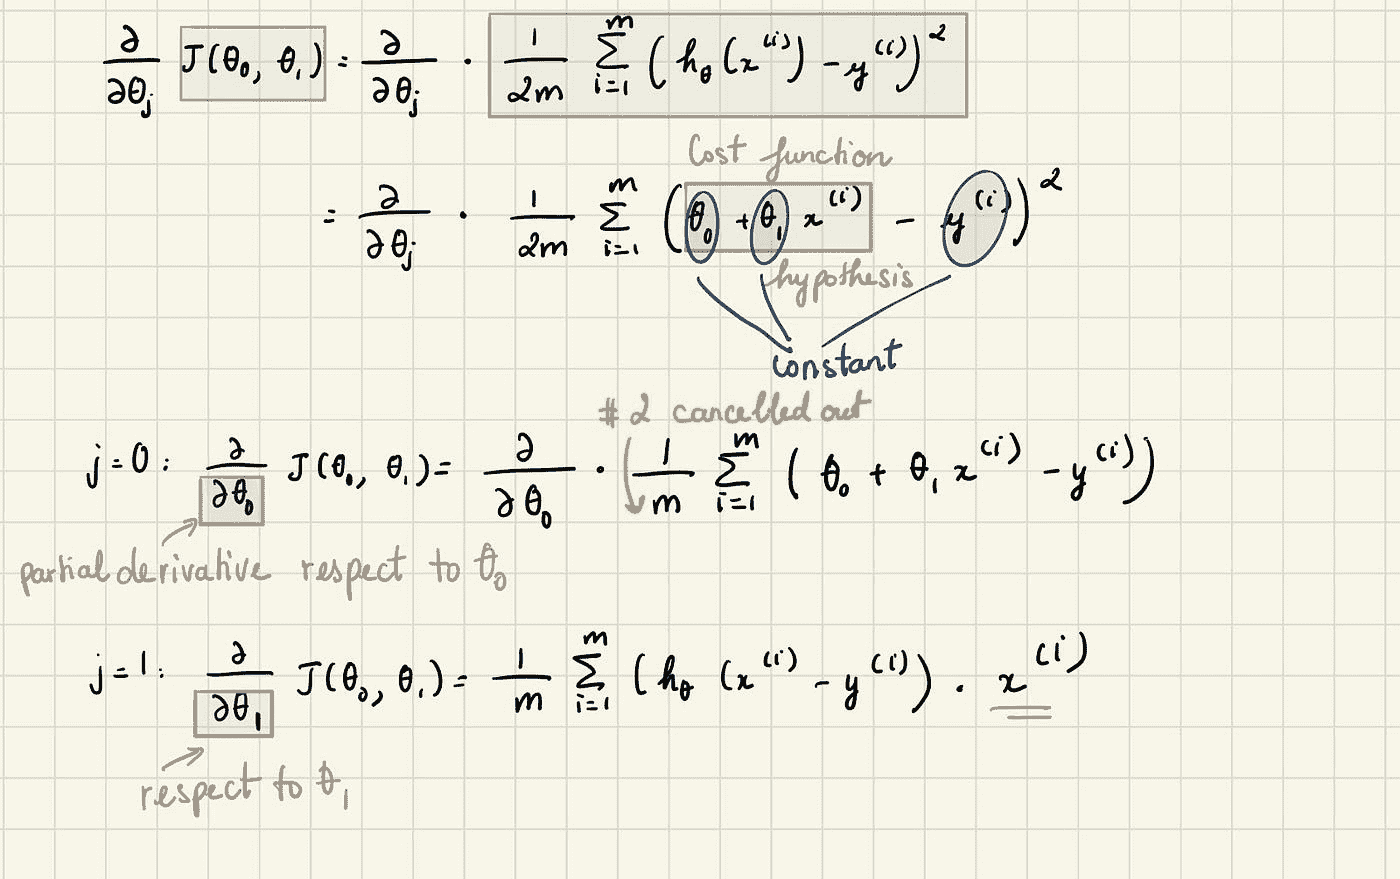 ∂/∂θⱼ J(θ₀, θ₁) = ∂/∂θⱼ · 1/2m ∑ᵢ₌₁ᵐ (h_θ(x⁽ⁱ⁾) − y⁽ⁱ⁾)²
Cost function
= ∂/∂θⱼ · 1/2m ∑ᵢ₌₁ᵐ (θ₀ + θ₁ x⁽ⁱ⁾ − y⁽ⁱ⁾)²
hypothesis
constant
# 2 cancelled out
j=0: ∂/∂θ₀ J(θ₀, θ₁) = ∂/∂θ₀ · 1/m ∑ᵢ₌₁ᵐ (θ₀ + θ₁ x⁽ⁱ⁾ − y⁽ⁱ⁾)
partial derivative respect to θ₀
j=1: ∂/∂θ₁ J(θ₀, θ₁) = 1/m ∑ᵢ₌₁ᵐ (h_θ (x⁽ⁱ⁾ − y⁽ⁱ⁾) · x⁽ⁱ⁾
respect to θ₁